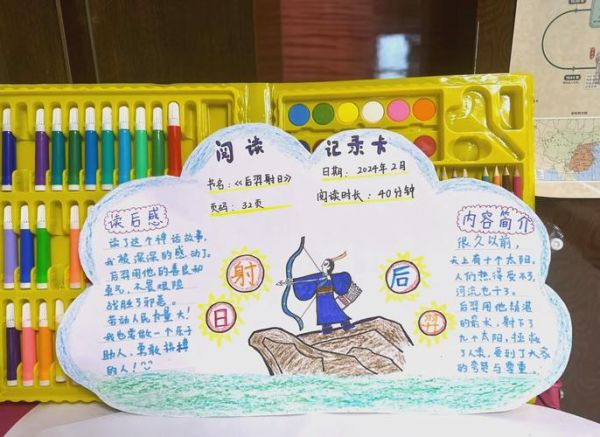 阅读记录卡
书名：《后羿射日》
日期：2024年2月
页码：32页
阅读时长：40分钟
读后感
读了这个神话故事，
我被深深的感动了。
后羿用他的善良和
勇气，不畏艰险
战胜了邪恶。
劳动人民力量大！
我也要做一个乐于
助人，勇敢拼搏
的人！
射
日
后
羿
内容简介
很久以前，
天上有十个太阳。
人们热得受不了，
河流也干了。
后羿用他精湛
的箭术，射下了
九个太阳，拯救
了人类，受到了大家
的夸赞与尊重。